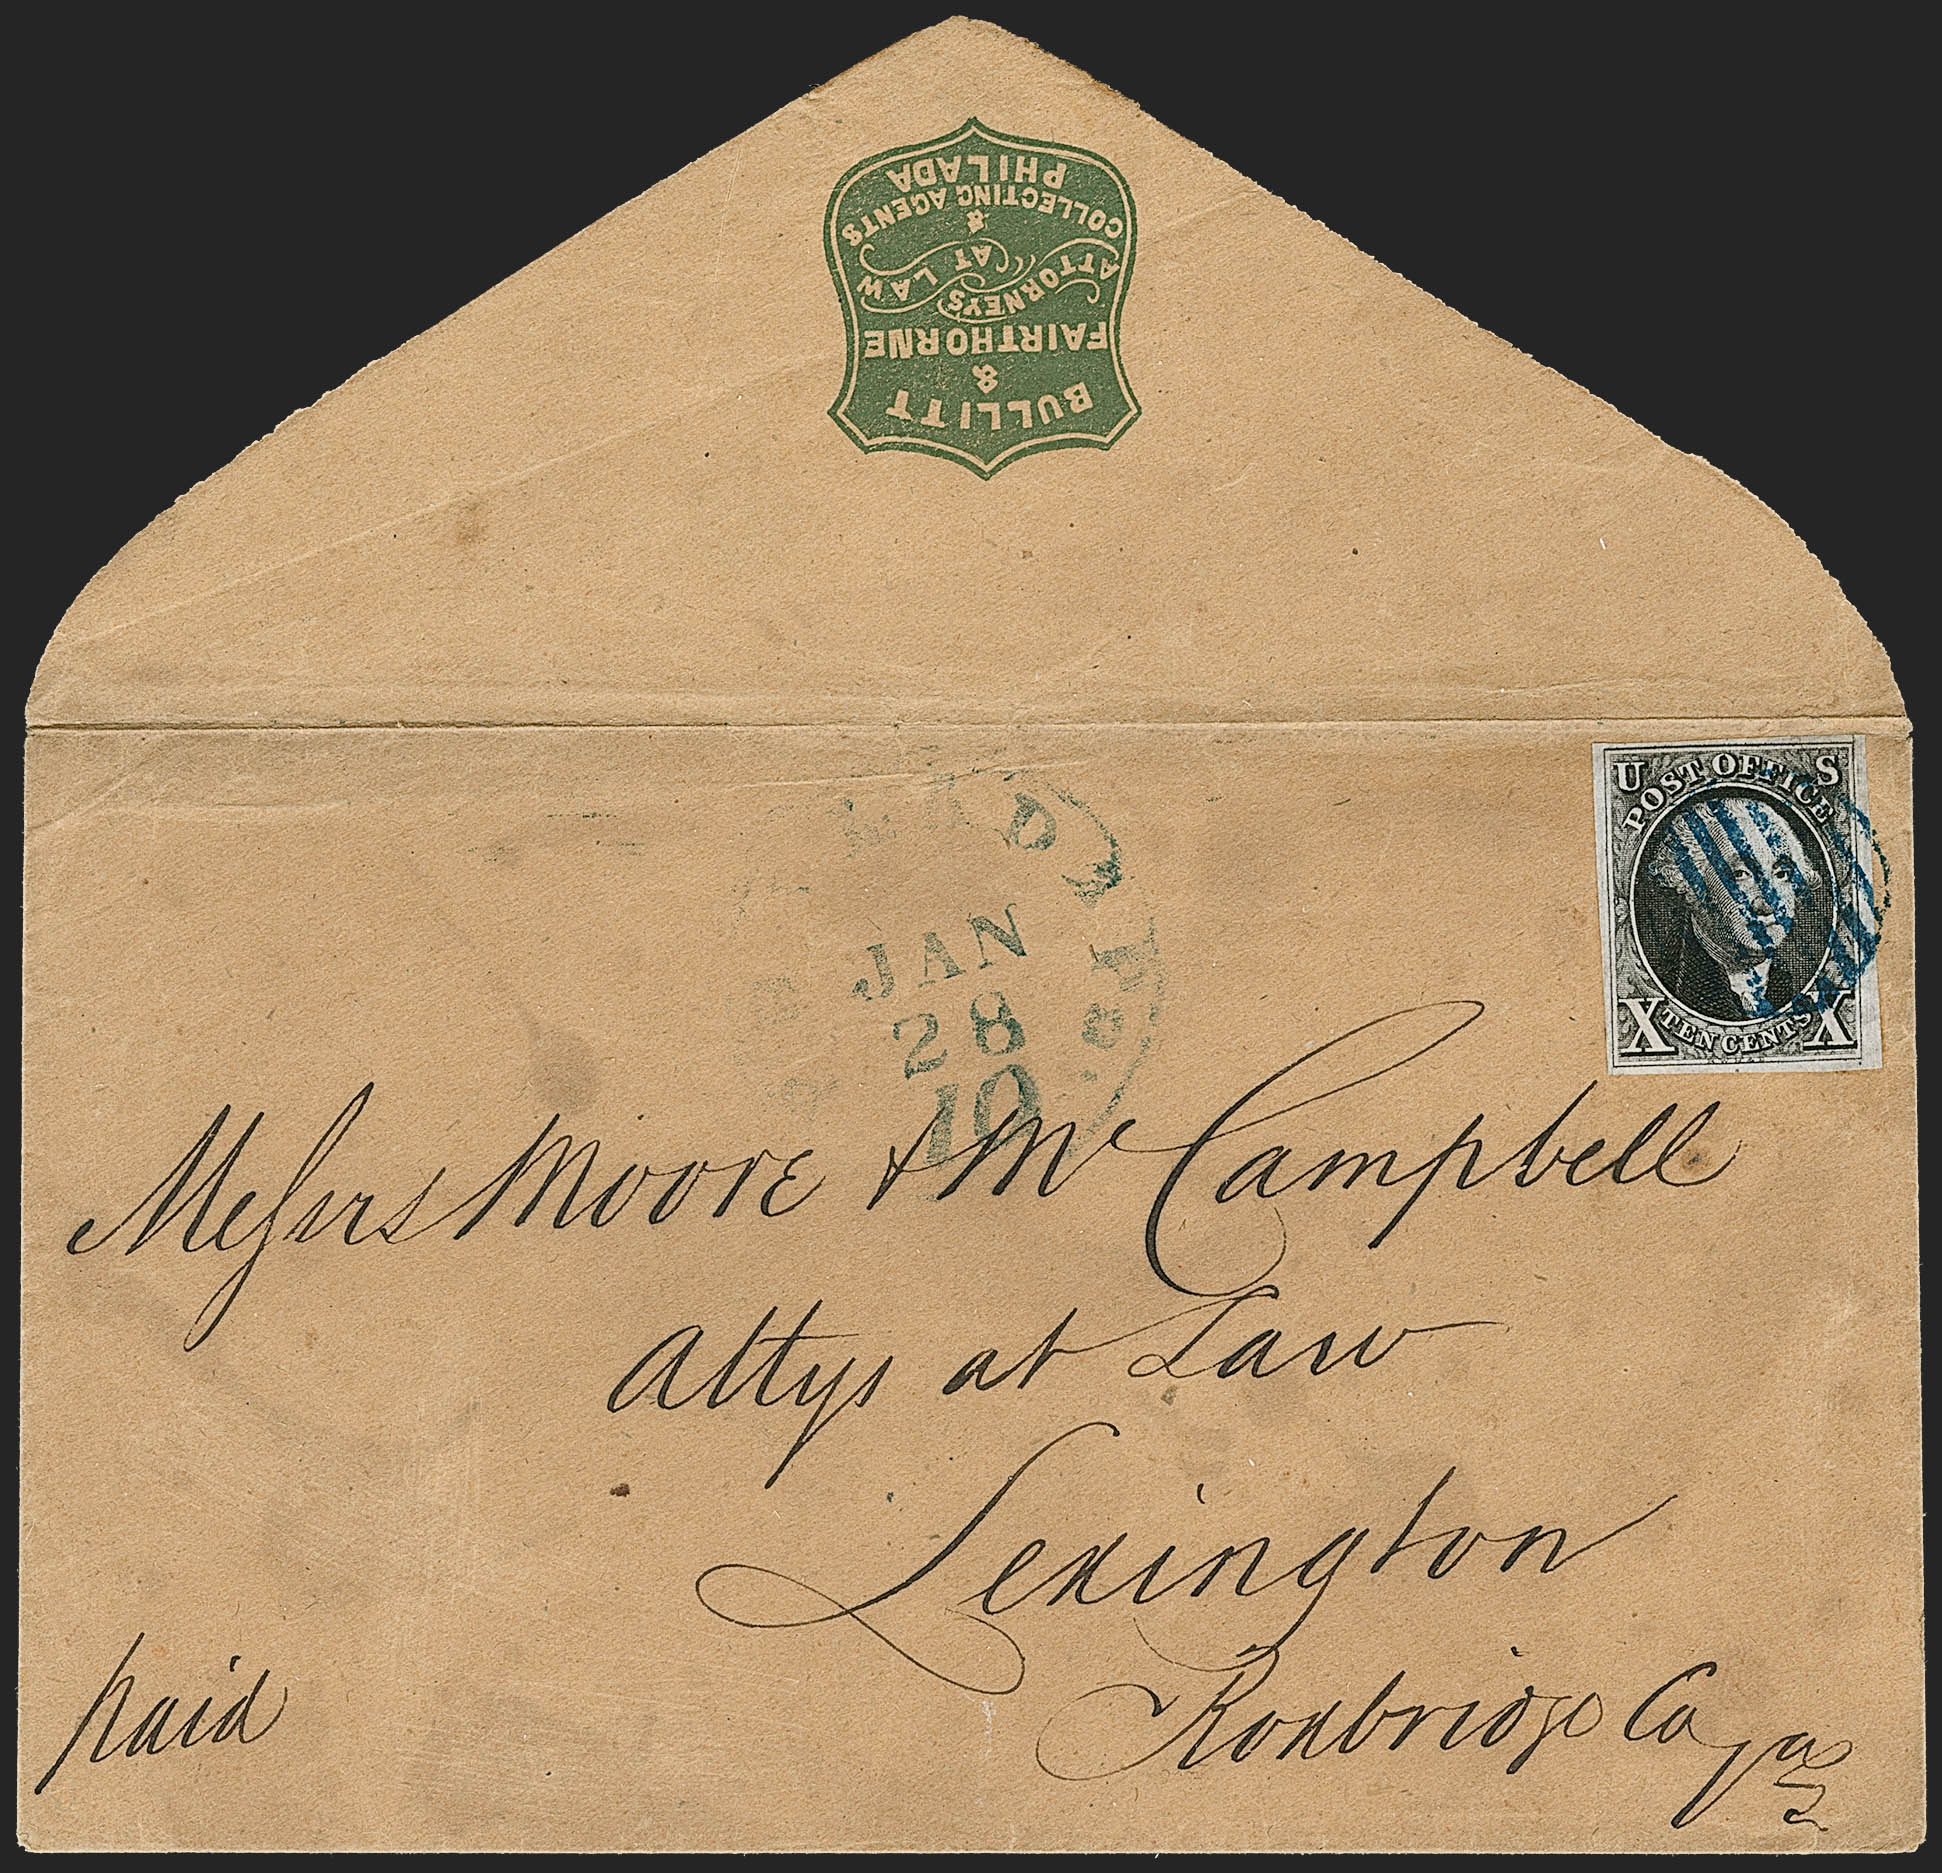 BULLITT
&
FAIRTHORNE
ATTORNEYS AT LAW
&
COLLECTING AGENTS
PHILADA
U S
POST OFFICE
X TEN CENTS X
JAN
28
10
Messrs Moore & McCampbell
Attys at Law
Lexington
Roxbridge Co
Va
paid